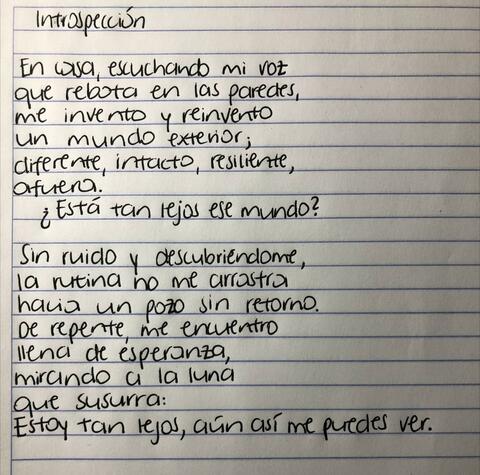 Introspección
En casa, escuchando mi voz
que rebota en las paredes,
me invento y reinvento
un mundo exterior;
diferente, intacto, resiliente,
afuera.
¿Está tan lejos ese mundo?
Sin ruido y descubriéndome,
la rutina no me arrastra
hacia un pozo sin retorno.
De repente, me encuentro
llena de esperanza,
mirando a la luna
que susurra:
Estoy tan lejos, aún así me puedes ver.